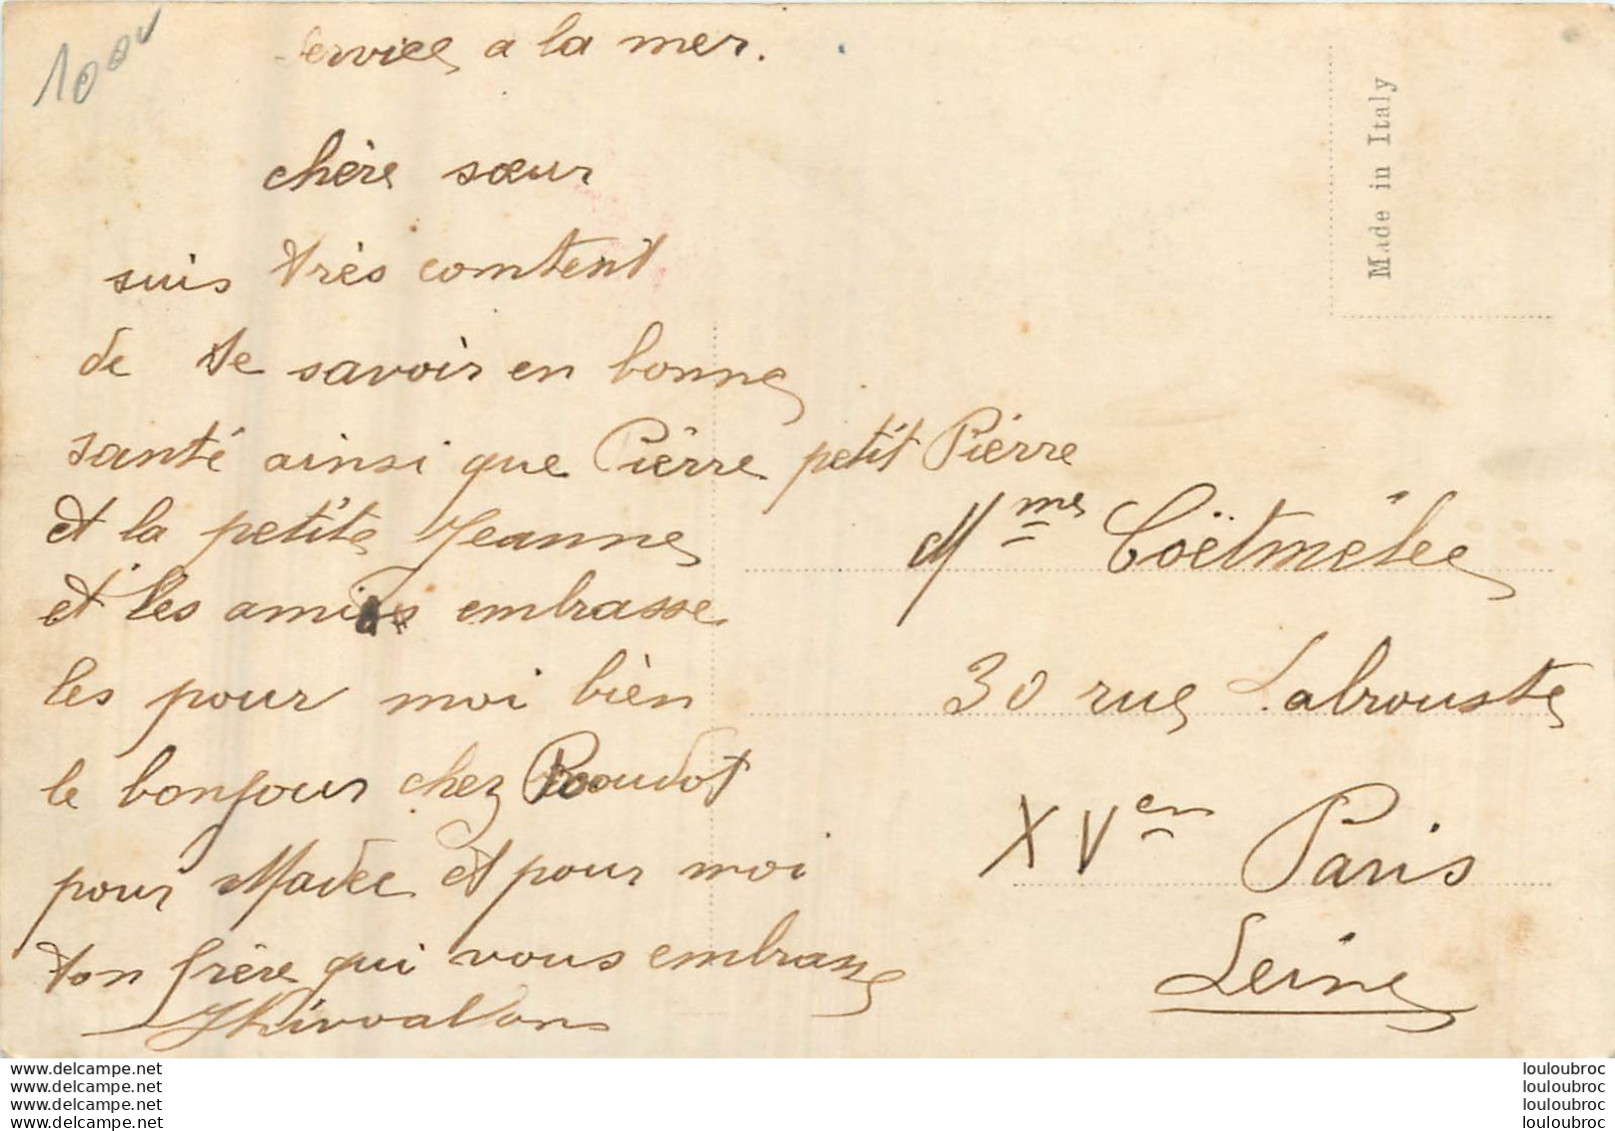 100
Service a la mer.
Made in Italy
chère sœur
suis très comtent
de te savoir en bonne
santé ainsi que Pièrre petit Pièrre
et la petite Jeanne
et les amis embrasse
les pour moi bièn
le bonjour chez
pour et pour moi
ton frère qui vous embrasse
Mme Coëtmélec
30 rue Labrouste
XVem Paris
Seine
www.delcampe.net
www.delcampe.net
www.delcampe.net
www.delcampe.net
louloubroc
louloubroc
louloubroc
louloubroc